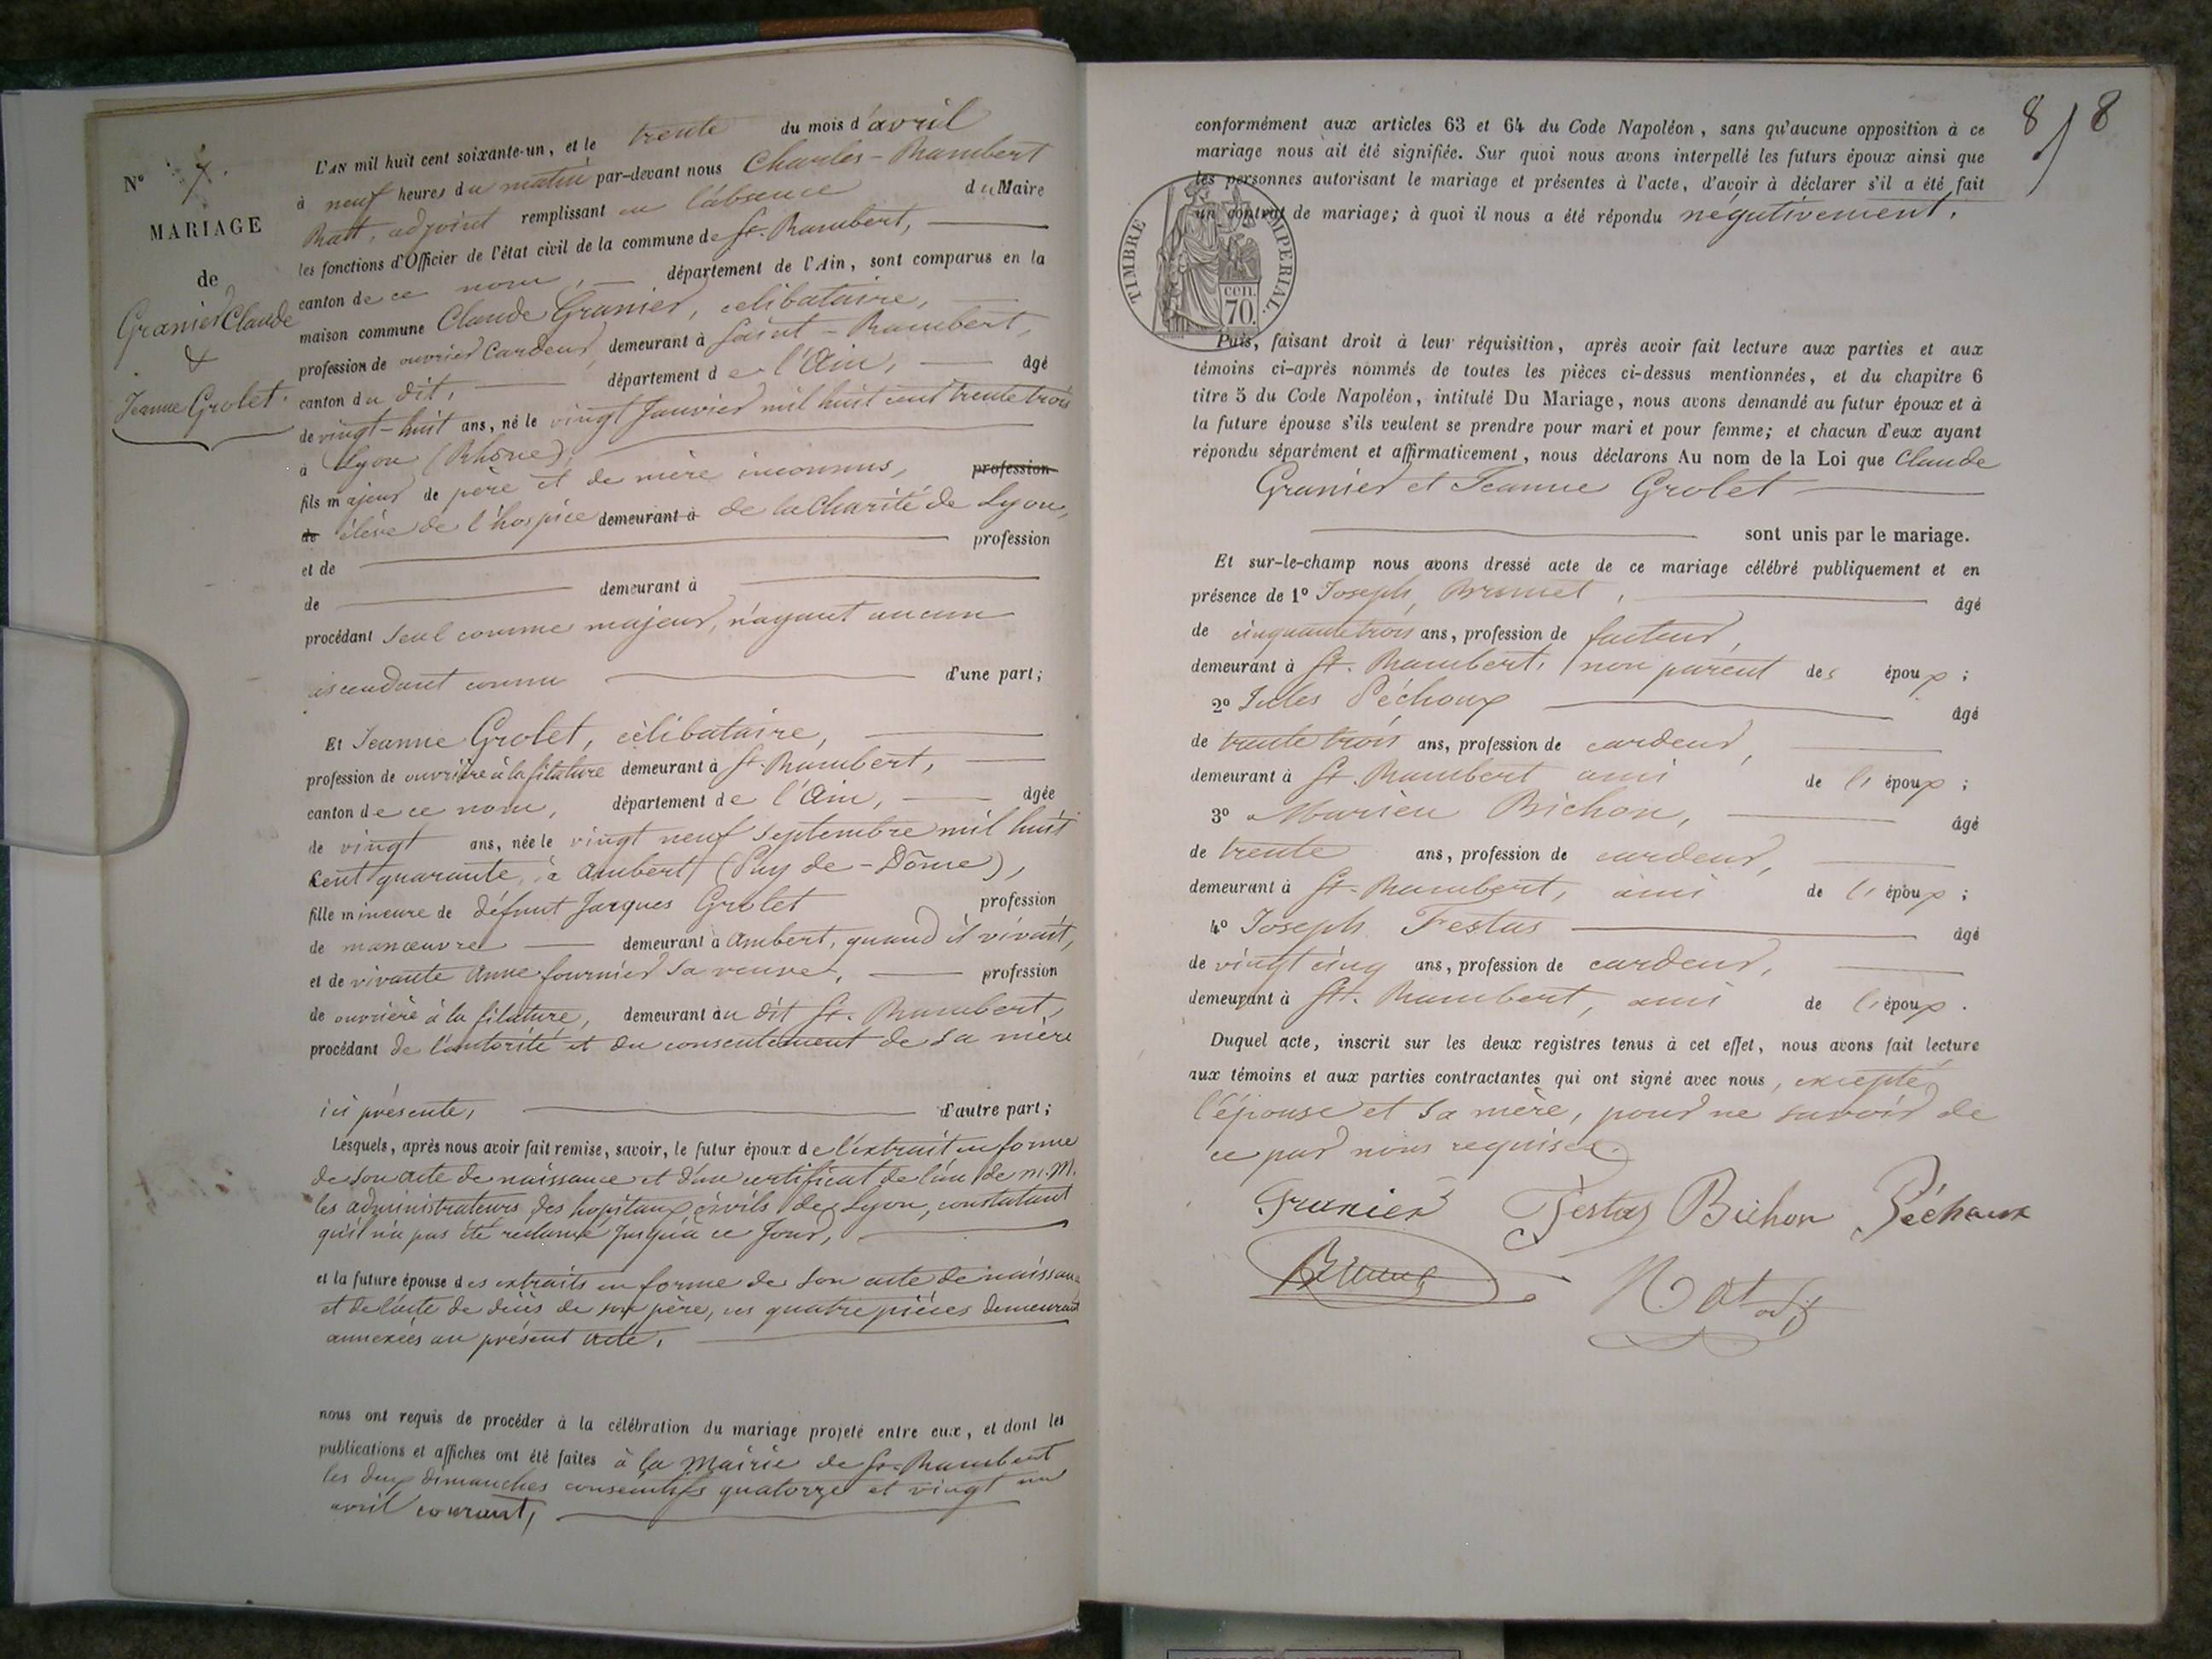 N° 7.
MARIAGE
de
Granier Claude
&
Jeanne Grolet.
L'AN mil huit cent soixante-un, et le trente du mois d'avril
à neuf heures du matin par-devant nous Charles-Rambert
Ratt, adjoint remplissant en l'absence du Maire
les fonctions d'Officier de l'état civil de la commune de St. Rambert,
canton de ce nom, département de l'Ain, sont comparus en la
maison commune Claude Granier, célibataire,
profession de ouvrier cardeur, demeurant à Saint-Rambert,
canton du dit, département de l'Ain, âgé
de vingt-huit ans, né le vingt Janvier mil huit cent trente trois
à Lyon (Rhône),
fils majeur de père et de mère inconnus, profession
de élève de l'hospice demeurant à de la Charité de Lyon,
et de profession
de demeurant à
procédant seul comme majeur, n'ayant aucun
ascendant connu d'une part;
Et Jeanne Grolet, célibataire,
profession de ouvrière à la filature demeurant à St. Rambert,
canton de ce nom, département de l'Ain, âgée
de vingt ans, née le vingt neuf septembre mil huit
cent quarante, à Ambert (Puy de-Dôme),
fille mineure de défunt Jacques Grolet profession
de manœuvre demeurant à Ambert, quand il vivait,
et de vivante Anne fournier sa veuve, profession
de ouvrière à la filature, demeurant au dit St. Rambert,
procédant de l'autorité et du consentement de sa mère
ici présente, d'autre part;
Lesquels, après nous avoir fait remise, savoir, le futur époux de l'extrait en forme
de son acte de naissance et d'un certificat de l'un de m.M.
les administrateurs des hopitaux civils de Lyon, constatant
qu'il n'a pas été réclamé jusqu'à ce jour,
et la future épouse des extraits en forme de son acte de naissance
et de l'acte de décès de son père, ces quatre pièces demeurant
annexées au présent acte.
nous ont requis de procéder à la célébration du mariage projeté entre eux, et dont les
publications et affiches ont été faites à la Mairie de St. Rambert
les deux dimanches consécutifs quatorze et vingt un
avril courant,
8/8
conformément aux articles 63 et 64 du Code Napoléon, sans qu'aucune opposition à ce
mariage nous ait été signifiée. Sur quoi nous avons interpellé les futurs époux ainsi que
les personnes autorisant le mariage et présentes à l'acte, d'avoir à déclarer s'il a été fait
un contrat de mariage; à quoi il nous a été répondu négativement.
TIMBRE IMPERIAL.
cen.
70.
Puis, faisant droit à leur réquisition, après avoir fait lecture aux parties et aux
témoins ci-après nommés de toutes les pièces ci-dessus mentionnées, et du chapitre 6
titre 5 du Code Napoléon, intitulé Du Mariage, nous avons demandé au futur époux et à
la future épouse s'ils veulent se prendre pour mari et pour femme; et chacun d'eux ayant
répondu séparément et affirmativement, nous déclarons Au nom de la Loi que Claude
Granier et Jeanne Grolet
sont unis par le mariage.
Et sur-le-champ nous avons dressé acte de ce mariage célébré publiquement et en
présence de 1° Joseph Brunet, âgé
de cinquante trois ans, profession de facteur,
demeurant à St. Rambert, non parent des époux;
2° Jules Péchoux âgé
de trente trois ans, profession de cardeur,
demeurant à St. Rambert ami de l'époux;
3° Marien Bichon, âgé
de trente ans, profession de cardeur,
demeurant à St. Rambert, ami de l'époux;
4° Joseph Festas âgé
de vingt cinq ans, profession de cardeur,
demeurant à St. Rambert, ami de l'époux.
Duquel acte, inscrit sur les deux registres tenus à cet effet, nous avons fait lecture
aux témoins et aux parties contractantes qui ont signé avec nous, excepté
l'épouse et sa mère, pour ne savoir de
ce par nous requises.
Granier Festas Bichon Péchoux
Brunet Ratt adj